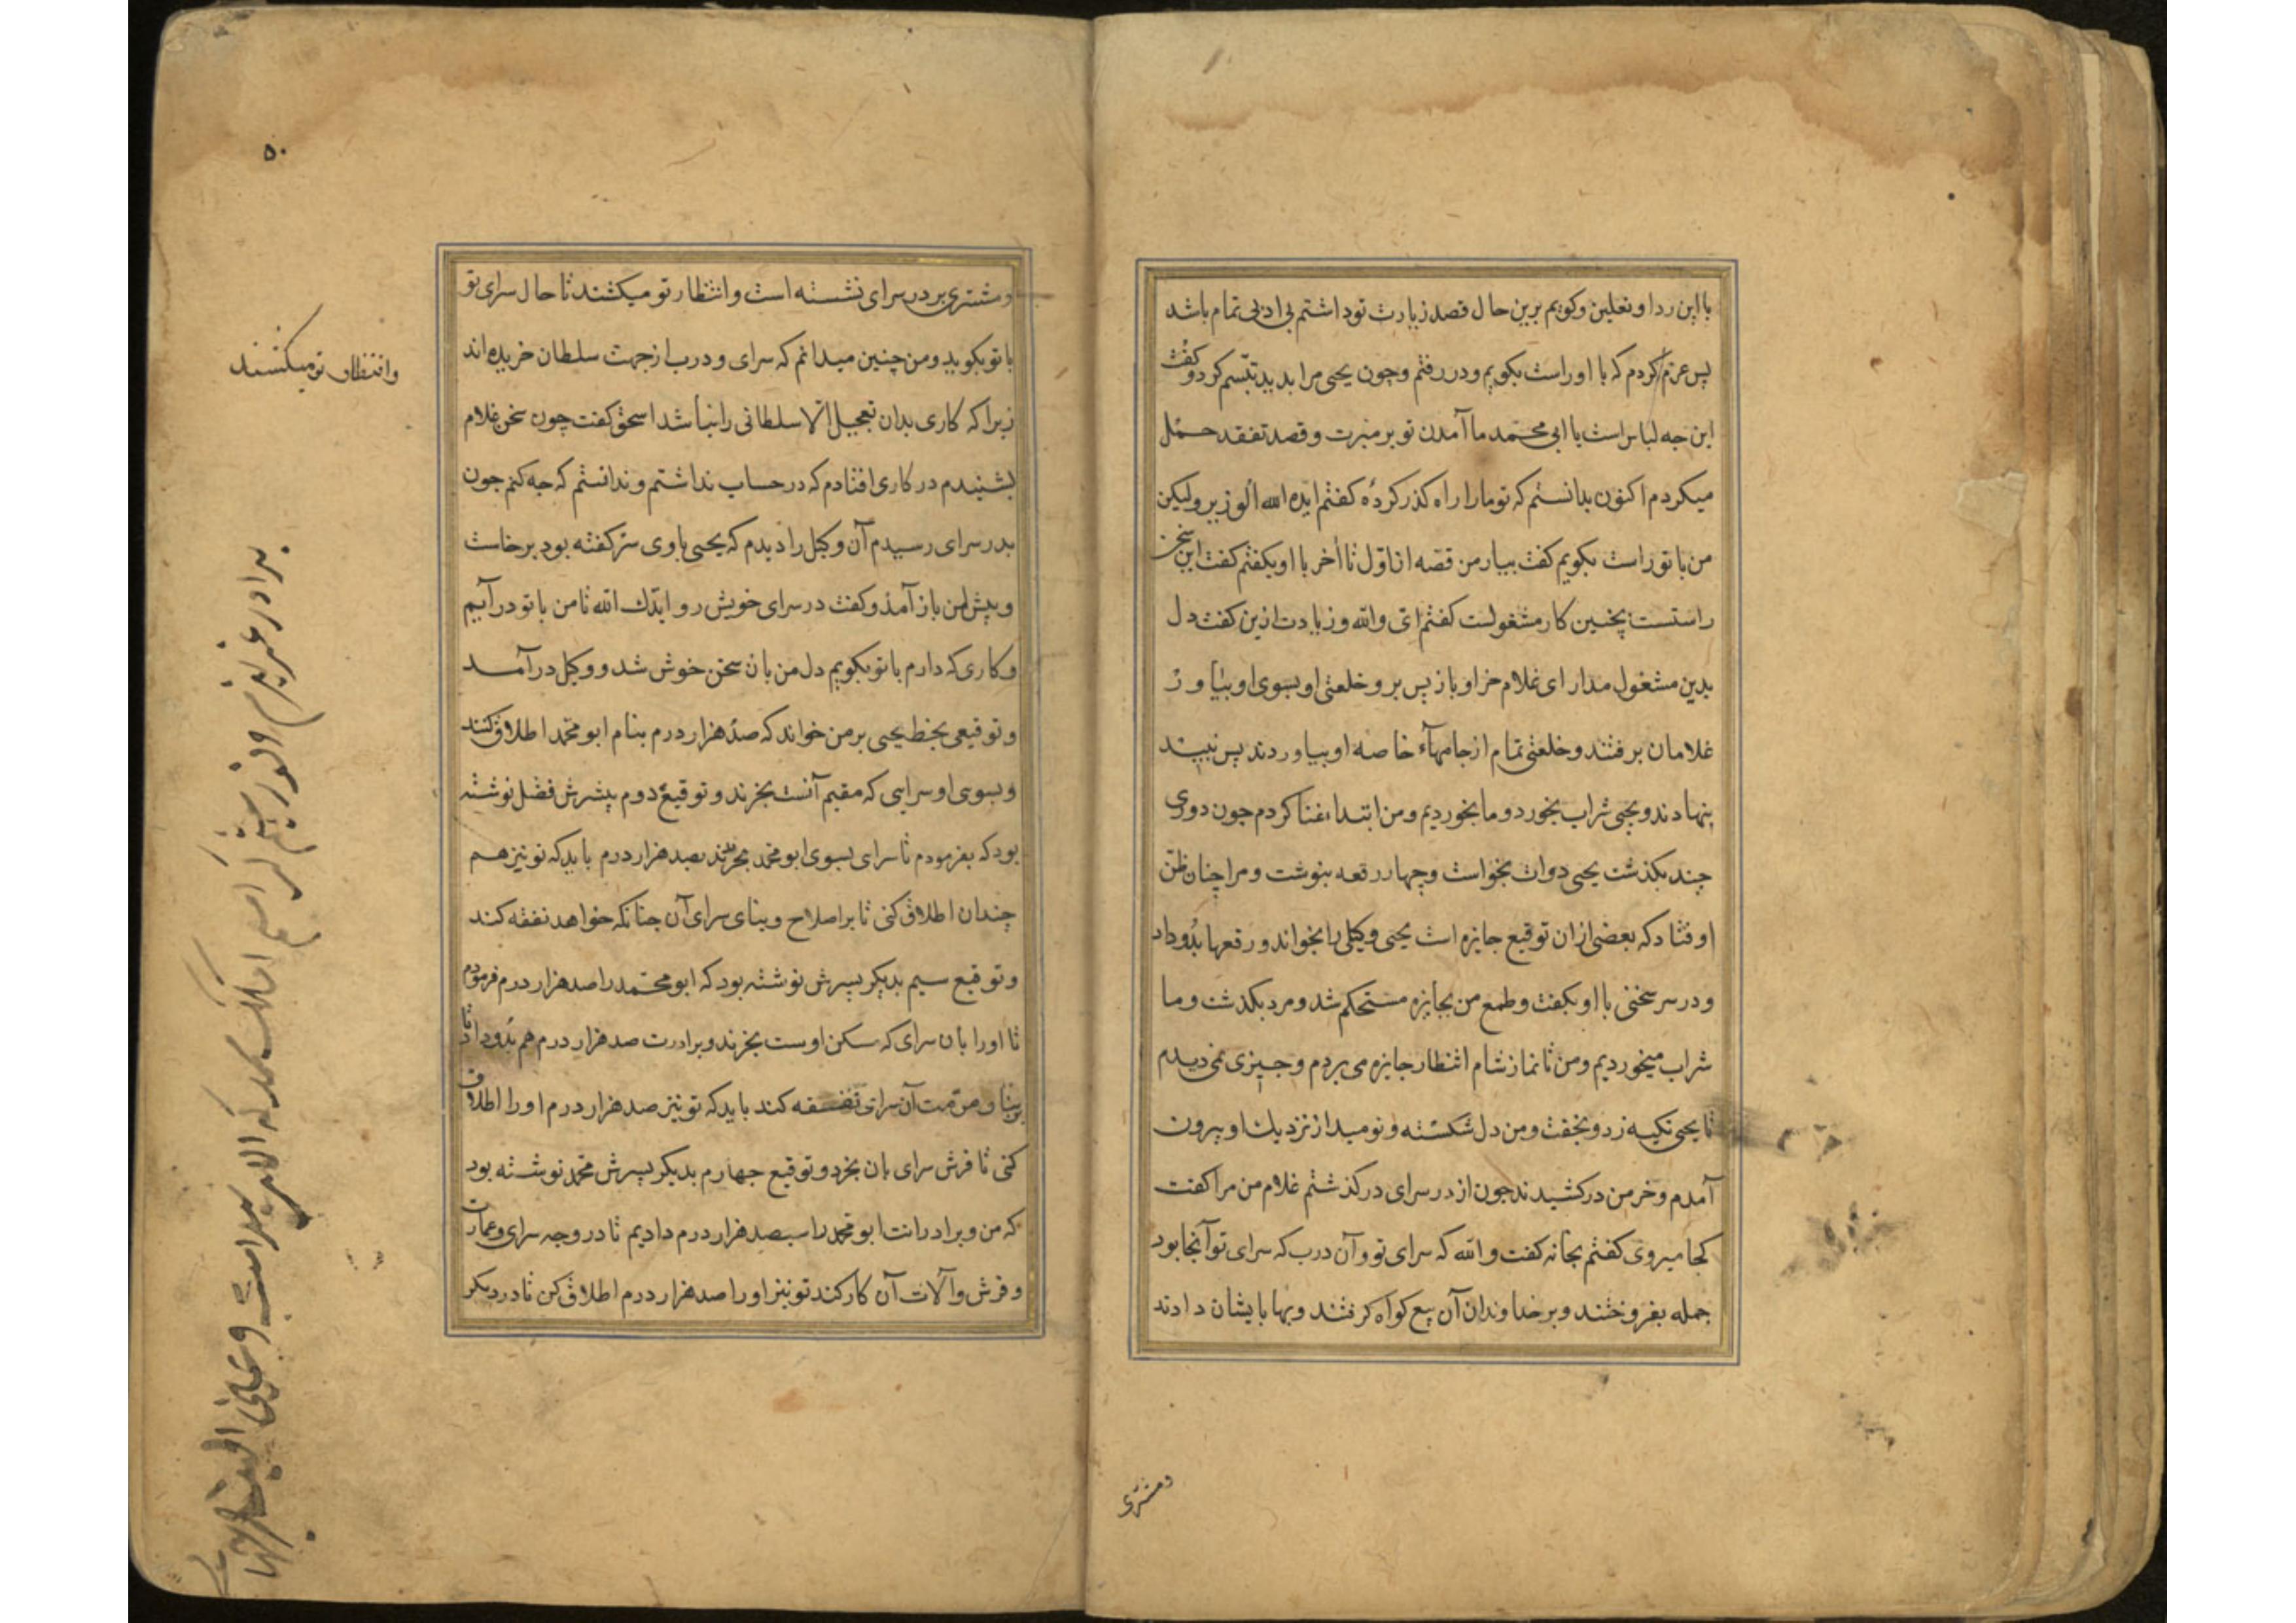 با این ردا و نعلین و کویم برین حال قصد زیارت تو داشتم بی ادبی تمام باشد
پس عزم کردم که با او راست بکویم و در رفتم و چون یحیی مرا بدید تبسّم کرد و کفت
این جه لباس است یا ابی محمد ما آمدن تو بر مبرت و قصد تفقد حمل
میکردم اکنون بدانستم که تو ما را راه کذر کردهٔ کفتم ایده الله الوزیر ولیکن
من با تو راست بکویم کفت بیار من قصه از اوّل تا آخر با او بکفتم کفت این سخن
راستست بچنین کار مشغولست کفتم ای والله و زیادت ازین کفت دل
بدین مشغول مدار ای غلام خر او باز پس بر و خلعتی او بسوی او بیاور
غلامان برفتند و خلعتی تمام از جامهاء خاصه او بیاوردند پس نبیند
بنهادند و یحیی شراب بخورد و ما بخوردیم و من ابتداء غنا کردم جون دوری
چند بکذشت یحیی دوات بخواست و چهار رقعه بنوشت و مرا چنان ظنّ
اوفتاد که بعضی ازان توقیع جایزه است یحیی وکیلی را بخواند و رقعها بدو داد
و در سر سخنی با او بکفت و طمع من بجایزه مستحکم شد و مرد بکذشت و ما
شراب میخوردیم و من تا نماز شام انتظار جایزه می بردم و جیزی نمی دیدم
تا یحیی تکیه زد و بخفت و من دل شکسته و نومید از نزدیک او بیرون
آمدم و خر من درکشیدند جون از در سرای درکذشتم غلام من مرا کفت
کجا میروی کفتم بخانه کفت والله که سرای تو و آن درب که سرای تو آنجا بود
جمله بفروختند و بر خداوندان آن بیع کواه کرفتند و بها بایشان دادند
ومشتری
۵۰
ومشتری بر در سرای نشسته است و انتظار تو میکشند تا حال سرای تو
با تو بکوید و من چنین میدانم که سرای و درب از جهت سلطان خریده اند
وانتظار تو میکشند
زیرا که کاری بدان تعجیل الا سلطانی را نباشد اسحق کفت چون سخن غلام
بشنیدم در کاری افتادم که در حساب نداشتم و ندانستم که چه کنم جون
بدر سرای رسیدم آن وکیل را دیدم که یحیی با وی سر کفته بود برخاست
و پیش من باز آمد و کفت در سرای خویش رو ایدّک الله تا من با تو درآیم
و کاری که دارم با تو بکویم دل من بان سخن خوش شد و وکیل درآمد
و توقیعی بخط یحیی بر من خواند که صد هزار درم بنام ابو محمد اطلاق کنند
و بسوی او سرایی که مقیم آنست بخرند و توقیع دوم پسرش فضل نوشته
بود که بفرمودم تا سرای بسوی ابو محمد بخرند بصد هزار درم باید که تو نیز هم
چندان اطلاق کنی تا بر اصلاح و بنای سرای آن جنانکه خواهد نفقه کند
و توقیع سیم بدیکر پسرش نوشته بود که ابو محمد را صد هزار درم فرمودم
تا او را بان سرای که سکن اوست بخرند و برادرت صد هزار درم هم بدو داد تا
بر بنا و مرّمت آن سرای نفقه کند باید که تو نیز صد هزار درم او را اطلاق
کنی تا فرش سرای بان بخرد و توقیع جهارم بدیکر پسرش محمد نوشته بود
که من و برادرانت ابو محمد را سیصد هزار درم دادیم تا در وجه سرای و عمارت
و فرش و آلات آن کار کند تو نیز او را صد هزار درم اطلاق کن تا در دیکر